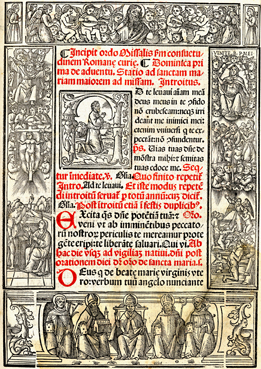 Incipit ordo Missalis scḋm consuetu
dinem Romane curie. Dominica pri
ma de aduentu. Statio ad sanctam ma
riam maiorem ad missam. Introitus.
VENITE B P MEI
D te leuaui aĩam meã
deus meus in te cõfido
nõ erubescam: neqʒ irri
deant me inimici mei:
etenim vniuersi q̃ te ex
pectant nõ cõfundentur.
ps. Uias tuas dñe de
mõstra mihi: ⁊ semitas
tuas edoce me. Seq̃
tur ĩmediate. v. Gl̃ia. Quo finito repetit̃
Intro. Ad te leuaui. Et iste modus repetẽ
di introitũ seruat̃ p totũ annũ: cuʒ dicit̃
Gl̃ia. Post ĩtroitũ etiã ĩ festis duplicibʒ.
Excita q̃s dñe potẽtiã tuã: ⁊
veni: vt ab imminentibus peccato
rũ nostroꝝ periculis te mereamur prote
gẽte eripi: te liberãte saluari. Qui vi. Ab
hac die vsqʒ ad vigiliaʒ natiui. dñi post
orationem diei dr̃ or̃o de sancta maria.
Deus q̃ de beate marie virginis vte
ro: verbum tuũ angelo nunciante